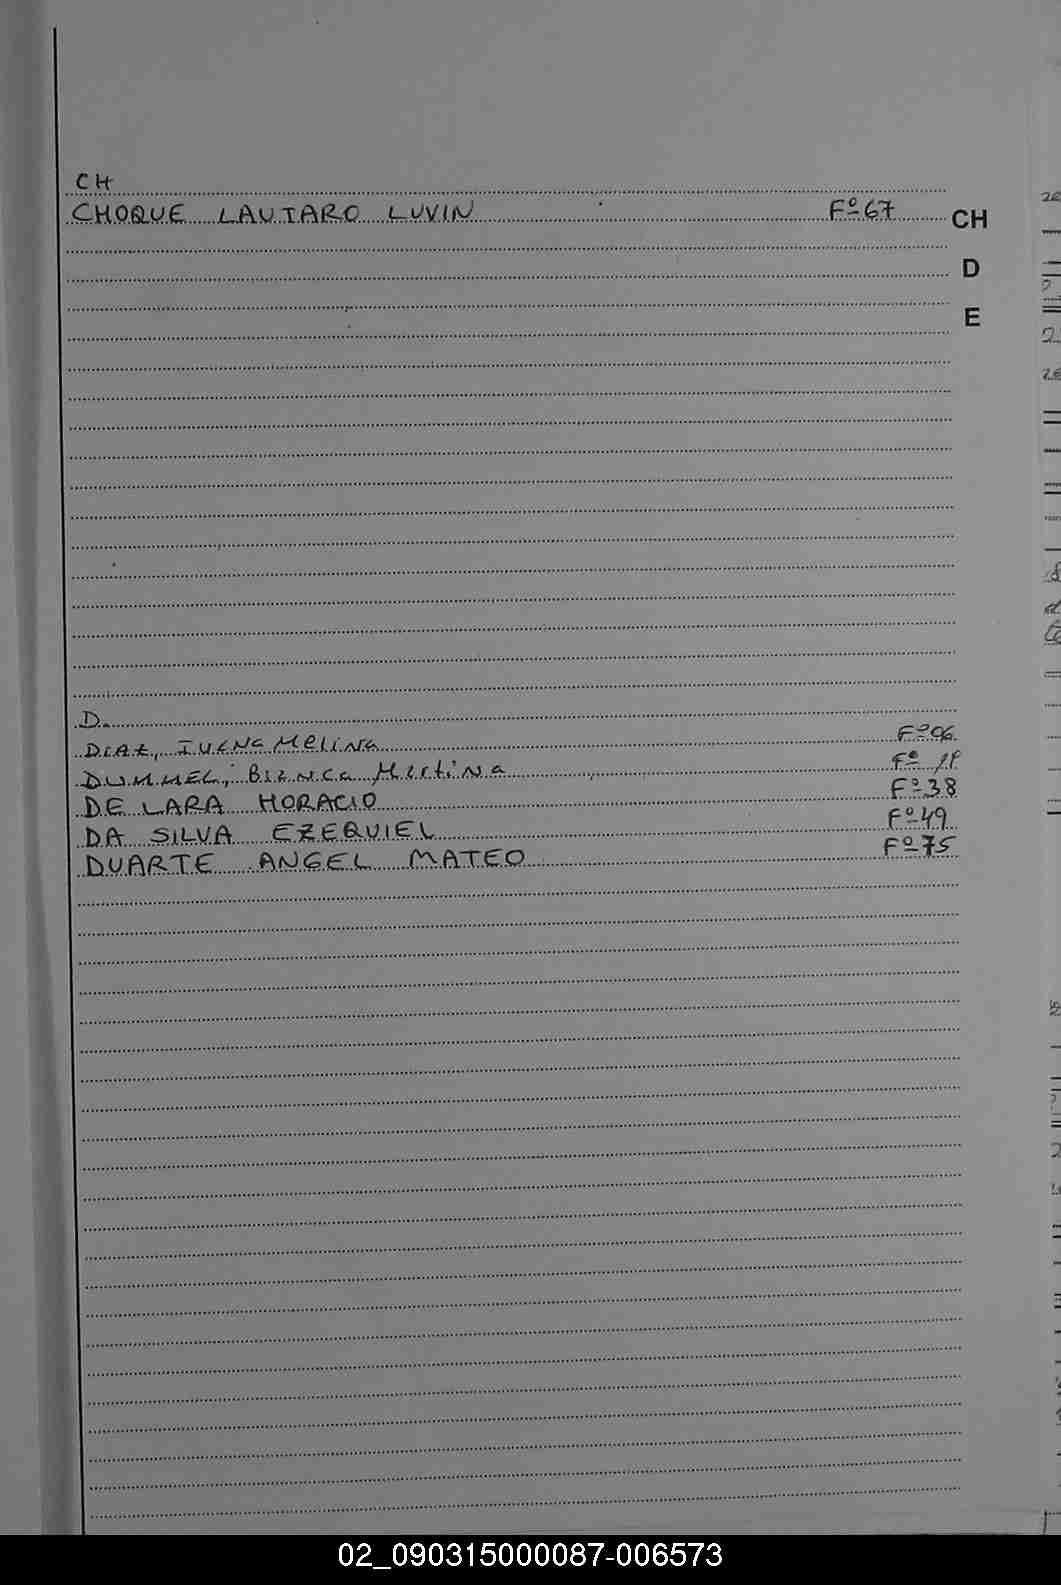 CH
CHOQUE LAUTARO LUVIN Fº 67
CH
D
E
D.
DIAZ, Melina Fº 06
DUMMEL, Bianca Martina Fº
DE LARA HORACIO Fº 38
DA SILVA EZEQUIEL Fº 49
DUARTE ANGEL MATEO Fº 75
02_090315000087-006573